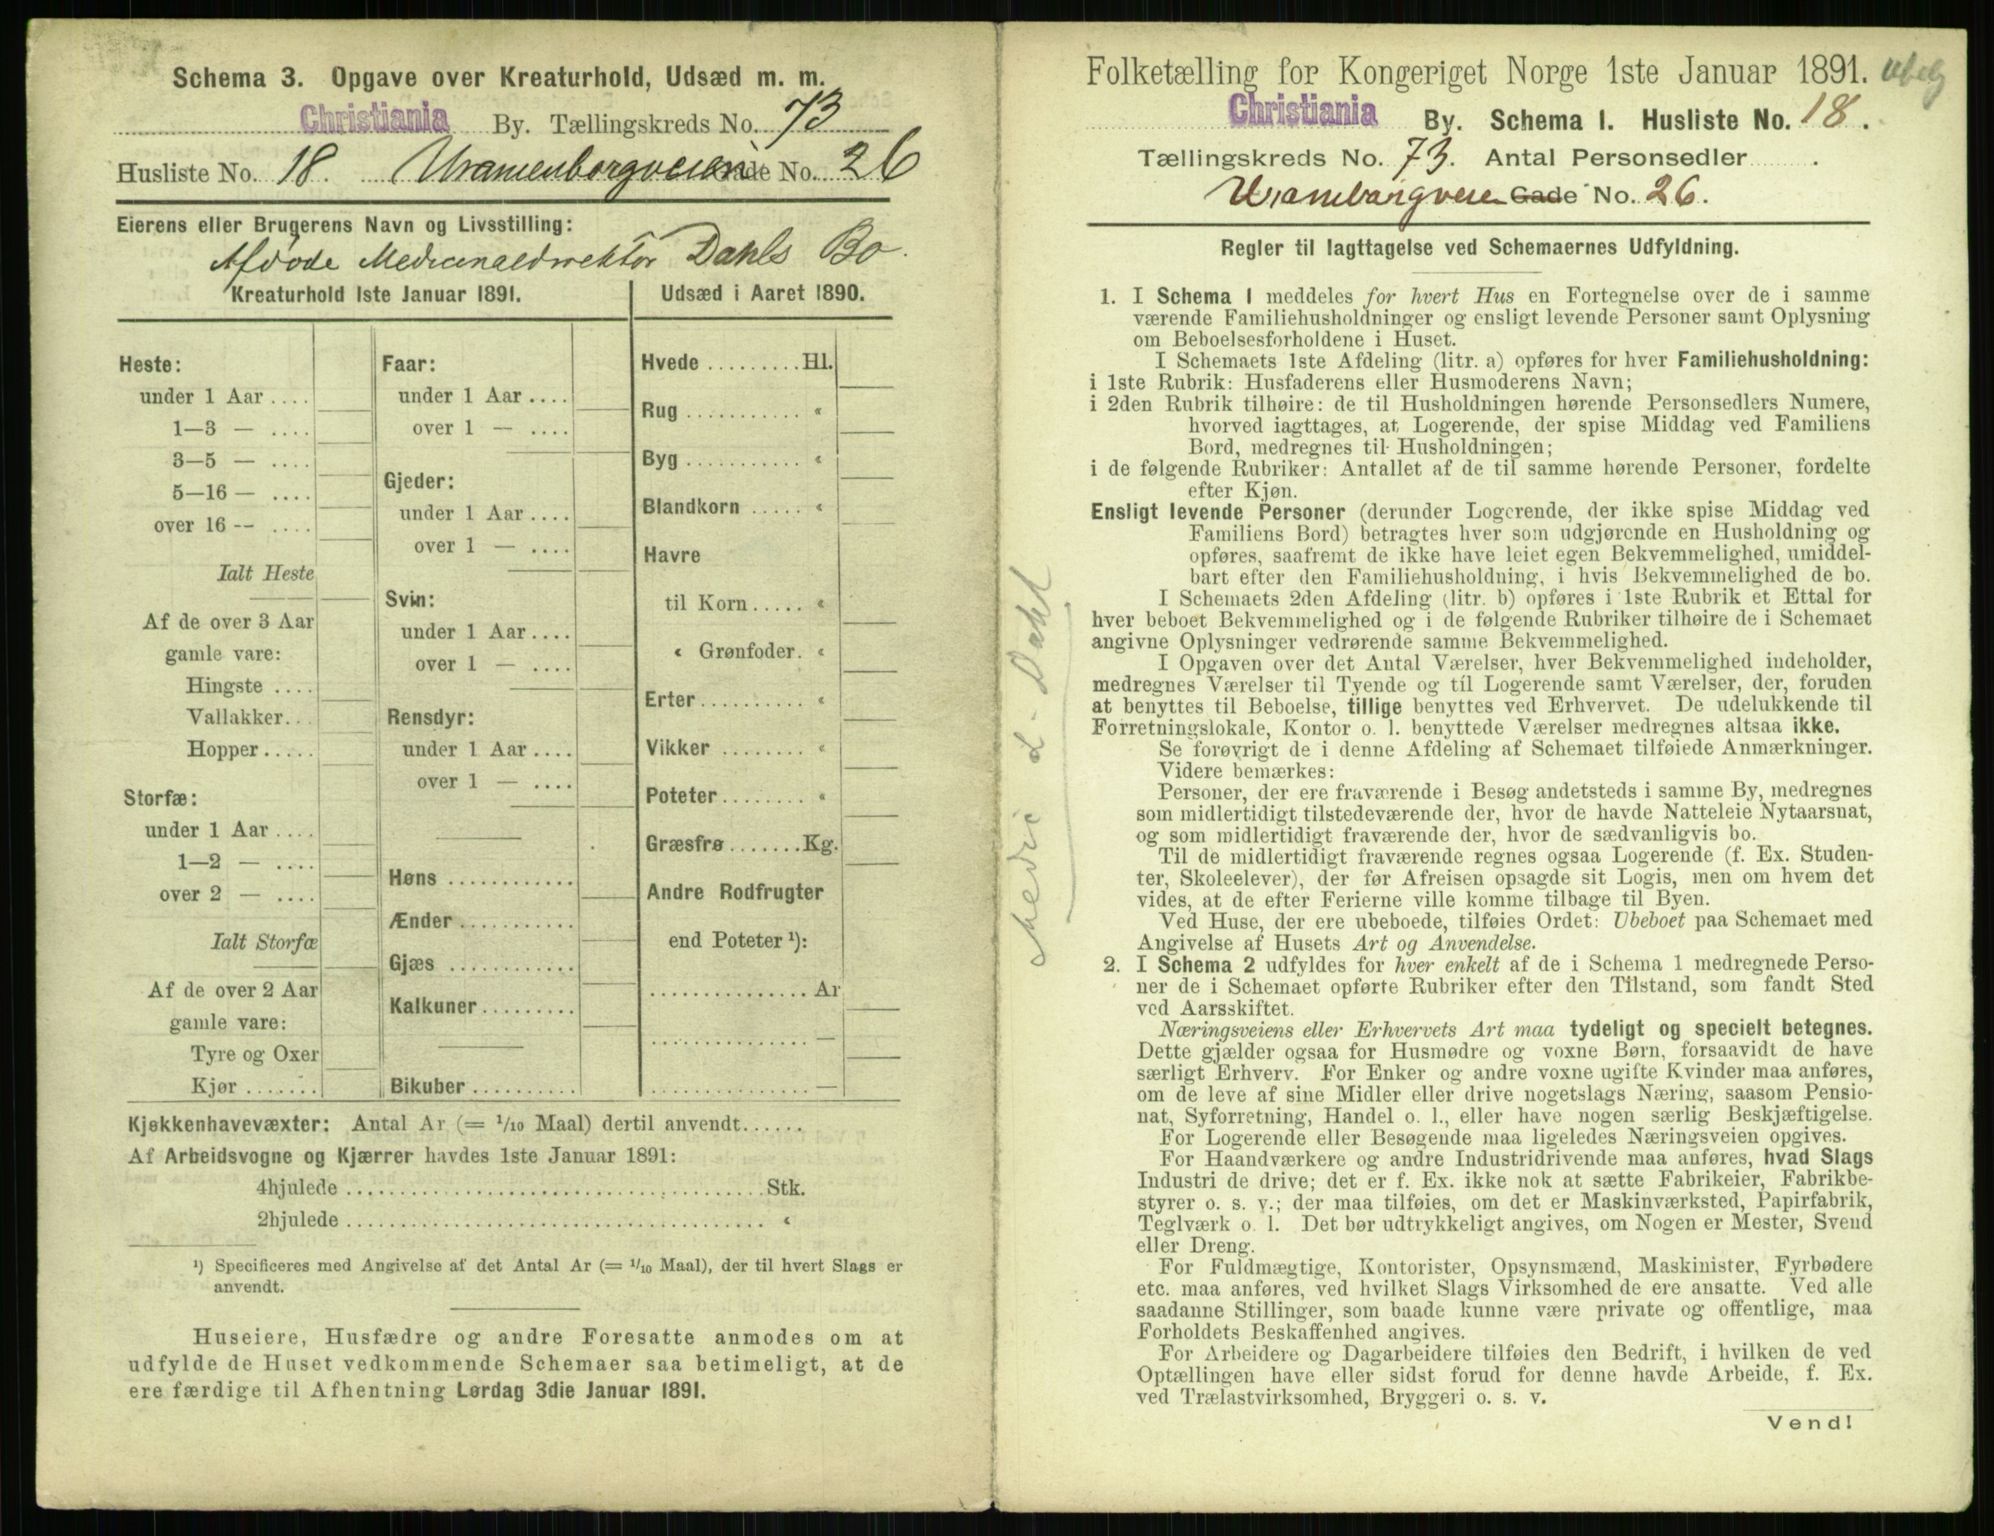 Schema 3. Opgave over Kreaturhold, Udsæd m. m.
Christiania By. Tællingskreds No. 73
Husliste No. 18. Uranienborgveien Gade No. 26
Eierens eller Brugerens Navn og Livsstilling:
Afdøde Medicinaldirektør Dahls Bo.
Kreaturhold 1ste Januar 1891.
Heste:
under 1 Aar ....
1—3 — ....
3—5 — ....
5—16 — ....
over 16 -- ....
Ialt Heste
Af de over 3 Aar
gamle vare:
Hingste ....
Vallakker...
Hopper .....
Storfæ:
under 1 Aar ....
1—2 — ....
over 2 — ....
Ialt Storfæ
Af de over 2 Aar
gamle vare:
Tyre og Oxer
Kjør .......
Faar:
under 1 Aar ....
over 1 — ....
Gjeder:
under 1 Aar ....
over 1 — ....
Svin:
under 1 Aar ....
over 1 — ....
Rensdyr:
under 1 Aar ....
over 1 — ....
Høns ............
Ænder ...........
Gjæs ............
Kalkuner.........
Bikuber ..........
Udsæd i Aaret 1890.
Hvede .........Hl.
Rug ........... «
Byg ........... «
Blandkorn ..... «
Havre
til Korn ..... «
« Grønfoder. «
Erter .......... «
Vikker ........ «
Poteter ........ «
Græsfrø .......Kg.
Andre Rodfrugter
end Poteter ¹):
............... Ar
............... —
............... —
Kjøkkenhavevæxter: Antal Ar (= 1/10 Maal) dertil anvendt......
Af Arbeidsvogne og Kjærrer havdes 1ste Januar 1891:
4hjulede ........................................Stk.
2hjulede ........................................ «
¹) Specificeres med Angivelse af det Antal Ar (= 1/10 Maal), der til hvert Slags er
anvendt.
Huseiere, Husfædre og andre Foresatte anmodes om at
udfylde de Huset vedkommende Schemaer saa betimeligt, at de
ere færdige til Afhentning Lørdag 3die Januar 1891.
Medic d. Dahl
Folketælling for Kongeriget Norge 1ste Januar 1891.
Christiania By. Schema 1. Husliste No. 18.
Tællingskreds No. 73. Antal Personsedler .
Uranieborgveien Gade No. 26.
Regler til Iagttagelse ved Schemaernes Udfyldning.
1. I Schema 1 meddeles for hvert Hus en Fortegnelse over de i samme
værende Familiehusholdninger og ensligt levende Personer samt Oplysning
om Beboelsesforholdene i Huset.
I Schemaets 1ste Afdeling (litr. a) opføres for hver Familiehusholdning:
i 1ste Rubrik: Husfaderens eller Husmoderens Navn;
i 2den Rubrik tilhøire: de til Husholdningen hørende Personsedlers Numere,
hvorved iagttages, at Logerende, der spise Middag ved Familiens
Bord, medregnes til Husholdningen;
i de følgende Rubriker: Antallet af de til samme hørende Personer, fordelte
efter Kjøn.
Ensligt levende Personer (derunder Logerende, der ikke spise Middag ved
Familiens Bord) betragtes hver som udgjørende en Husholdning og
opføres, saafremt de ikke have leiet egen Bekvemmelighed, umiddel-
bart efter den Familiehusholdning, i hvis Bekvemmelighed de bo.
I Schemaets 2den Afdeling (litr. b) opføres i 1ste Rubrik et Ettal for
hver beboet Bekvemmelighed og i de følgende Rubriker tilhøire de i Schemaet
angivne Oplysninger vedrørende samme Bekvemmelighed.
I Opgaven over det Antal Værelser, hver Bekvemmelighed indeholder,
medregnes Værelser til Tyende og til Logerende samt Værelser, der, foruden
at benyttes til Beboelse, tillige benyttes ved Erhvervet. De udelukkende til
Forretningslokale, Kontor o. l. benyttede Værelser medregnes altsaa ikke.
Se forøvrigt de i denne Afdeling af Schemaet tilføiede Anmærkninger.
Videre bemærkes:
Personer, der ere fraværende i Besøg andetsteds i samme By, medregnes
som midlertidigt tilstedeværende der, hvor de havde Natteleie Nytaarsnat,
og som midlertidigt fraværende der, hvor de sædvanligvis bo.
Til de midlertidigt fraværende regnes ogsaa Logerende (f. Ex. Studen-
ter, Skoleelever), der før Afreisen opsagde sit Logis, men om hvem det
vides, at de efter Ferierne ville komme tilbage til Byen.
Ved Huse, der ere ubeboede, tilføies Ordet: Ubeboet paa Schemaet med
Angivelse af Husets Art og Anvendelse.
2. I Schema 2 udfyldes for hver enkelt af de i Schema 1 medregnede Perso-
ner de i Schemaet opførte Rubriker efter den Tilstand, som fandt Sted
ved Aarsskiftet.
Næringsveiens eller Erhvervets Art maa tydeligt og specielt betegnes.
Dette gjælder ogsaa for Husmødre og voxne Børn, forsaavidt de have
særligt Erhverv. For Enker og andre voxne ugifte Kvinder maa anføres,
om de leve af sine Midler eller drive nogetslags Næring, saasom Pensio-
nat, Syforretning, Handel o. l., eller have nogen særlig Beskjæftigelse.
For Logerende eller Besøgende maa ligeledes Næringsveien opgives.
For Haandværkere og andre Industridrivende maa anføres, hvad Slags
Industri de drive; det er f. Ex. ikke nok at sætte Fabrikeier, Fabrikbe-
styrer o. s. v.; der maa tilføies, om det er Maskinværksted, Papirfabrik,
Teglværk o. l. Det bør udtrykkeligt angives, om Nogen er Mester, Svend
eller Dreng.
For Fuldmægtige, Kontorister, Opsynsmænd, Maskinister, Fyrbødere
etc. maa anføres, ved hvilket Slags Virksomhed de ere ansatte. Ved alle
saadanne Stillinger, som baade kunne være private og offentlige, maa
Forholdets Beskaffenhed angives.
For Arbeidere og Dagarbeidere tilføies den Bedrift, i hvilken de ved
Optællingen have eller sidst forud for denne havde Arbeide, f. Ex.
ved Trælastvirksomhed, Bryggeri o. s. v.
Vend!